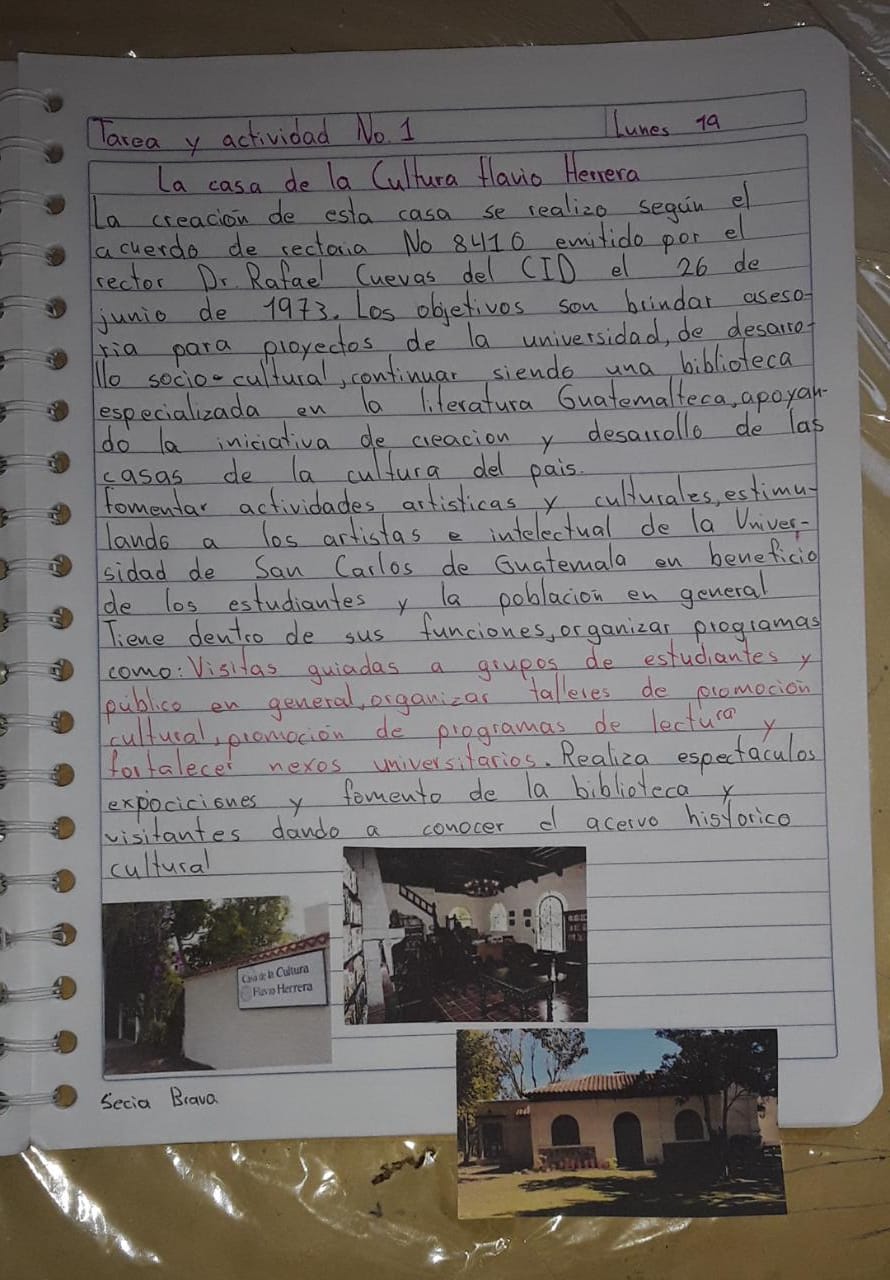 Tarea y actividad No. 1
Lunes 19
La casa de la Cultura flavio Herrera
La creación de esta casa se realizo según el
acuerdo de rectoria No 8416 emitido por el
rector Dr. Rafael Cuevas del CID el 26 de
junio de 1973. Los objetivos son brindar aseso-
ria para proyectos de la universidad, de desarro-
llo socio-cultural, continuar siendo una biblioteca
especializada en la literatura Guatemalteca, apoyan-
do la iniciativa de creacion y desarrollo de las
casas de la cultura del pais.
fomentar actividades artisticas y culturales, estimu-
lando a los artistas e intelectual de la Univer-
sidad de San Carlos de Guatemala en beneficio
de los estudiantes y la poblacion en general
Tiene dentro de sus funciones, organizar programas
como: Visitas guiadas a grupos de estudiantes y
público en general, organizar talleres de promocion
cultural, promoción de programas de lectura y
fortalecer nexos universitarios. Realiza espectaculos
expociciones y fomento de la biblioteca y
visitantes dando a conocer el acervo historico
cultural
Casa de la Cultura
Flavio Herrera
Secia Brava